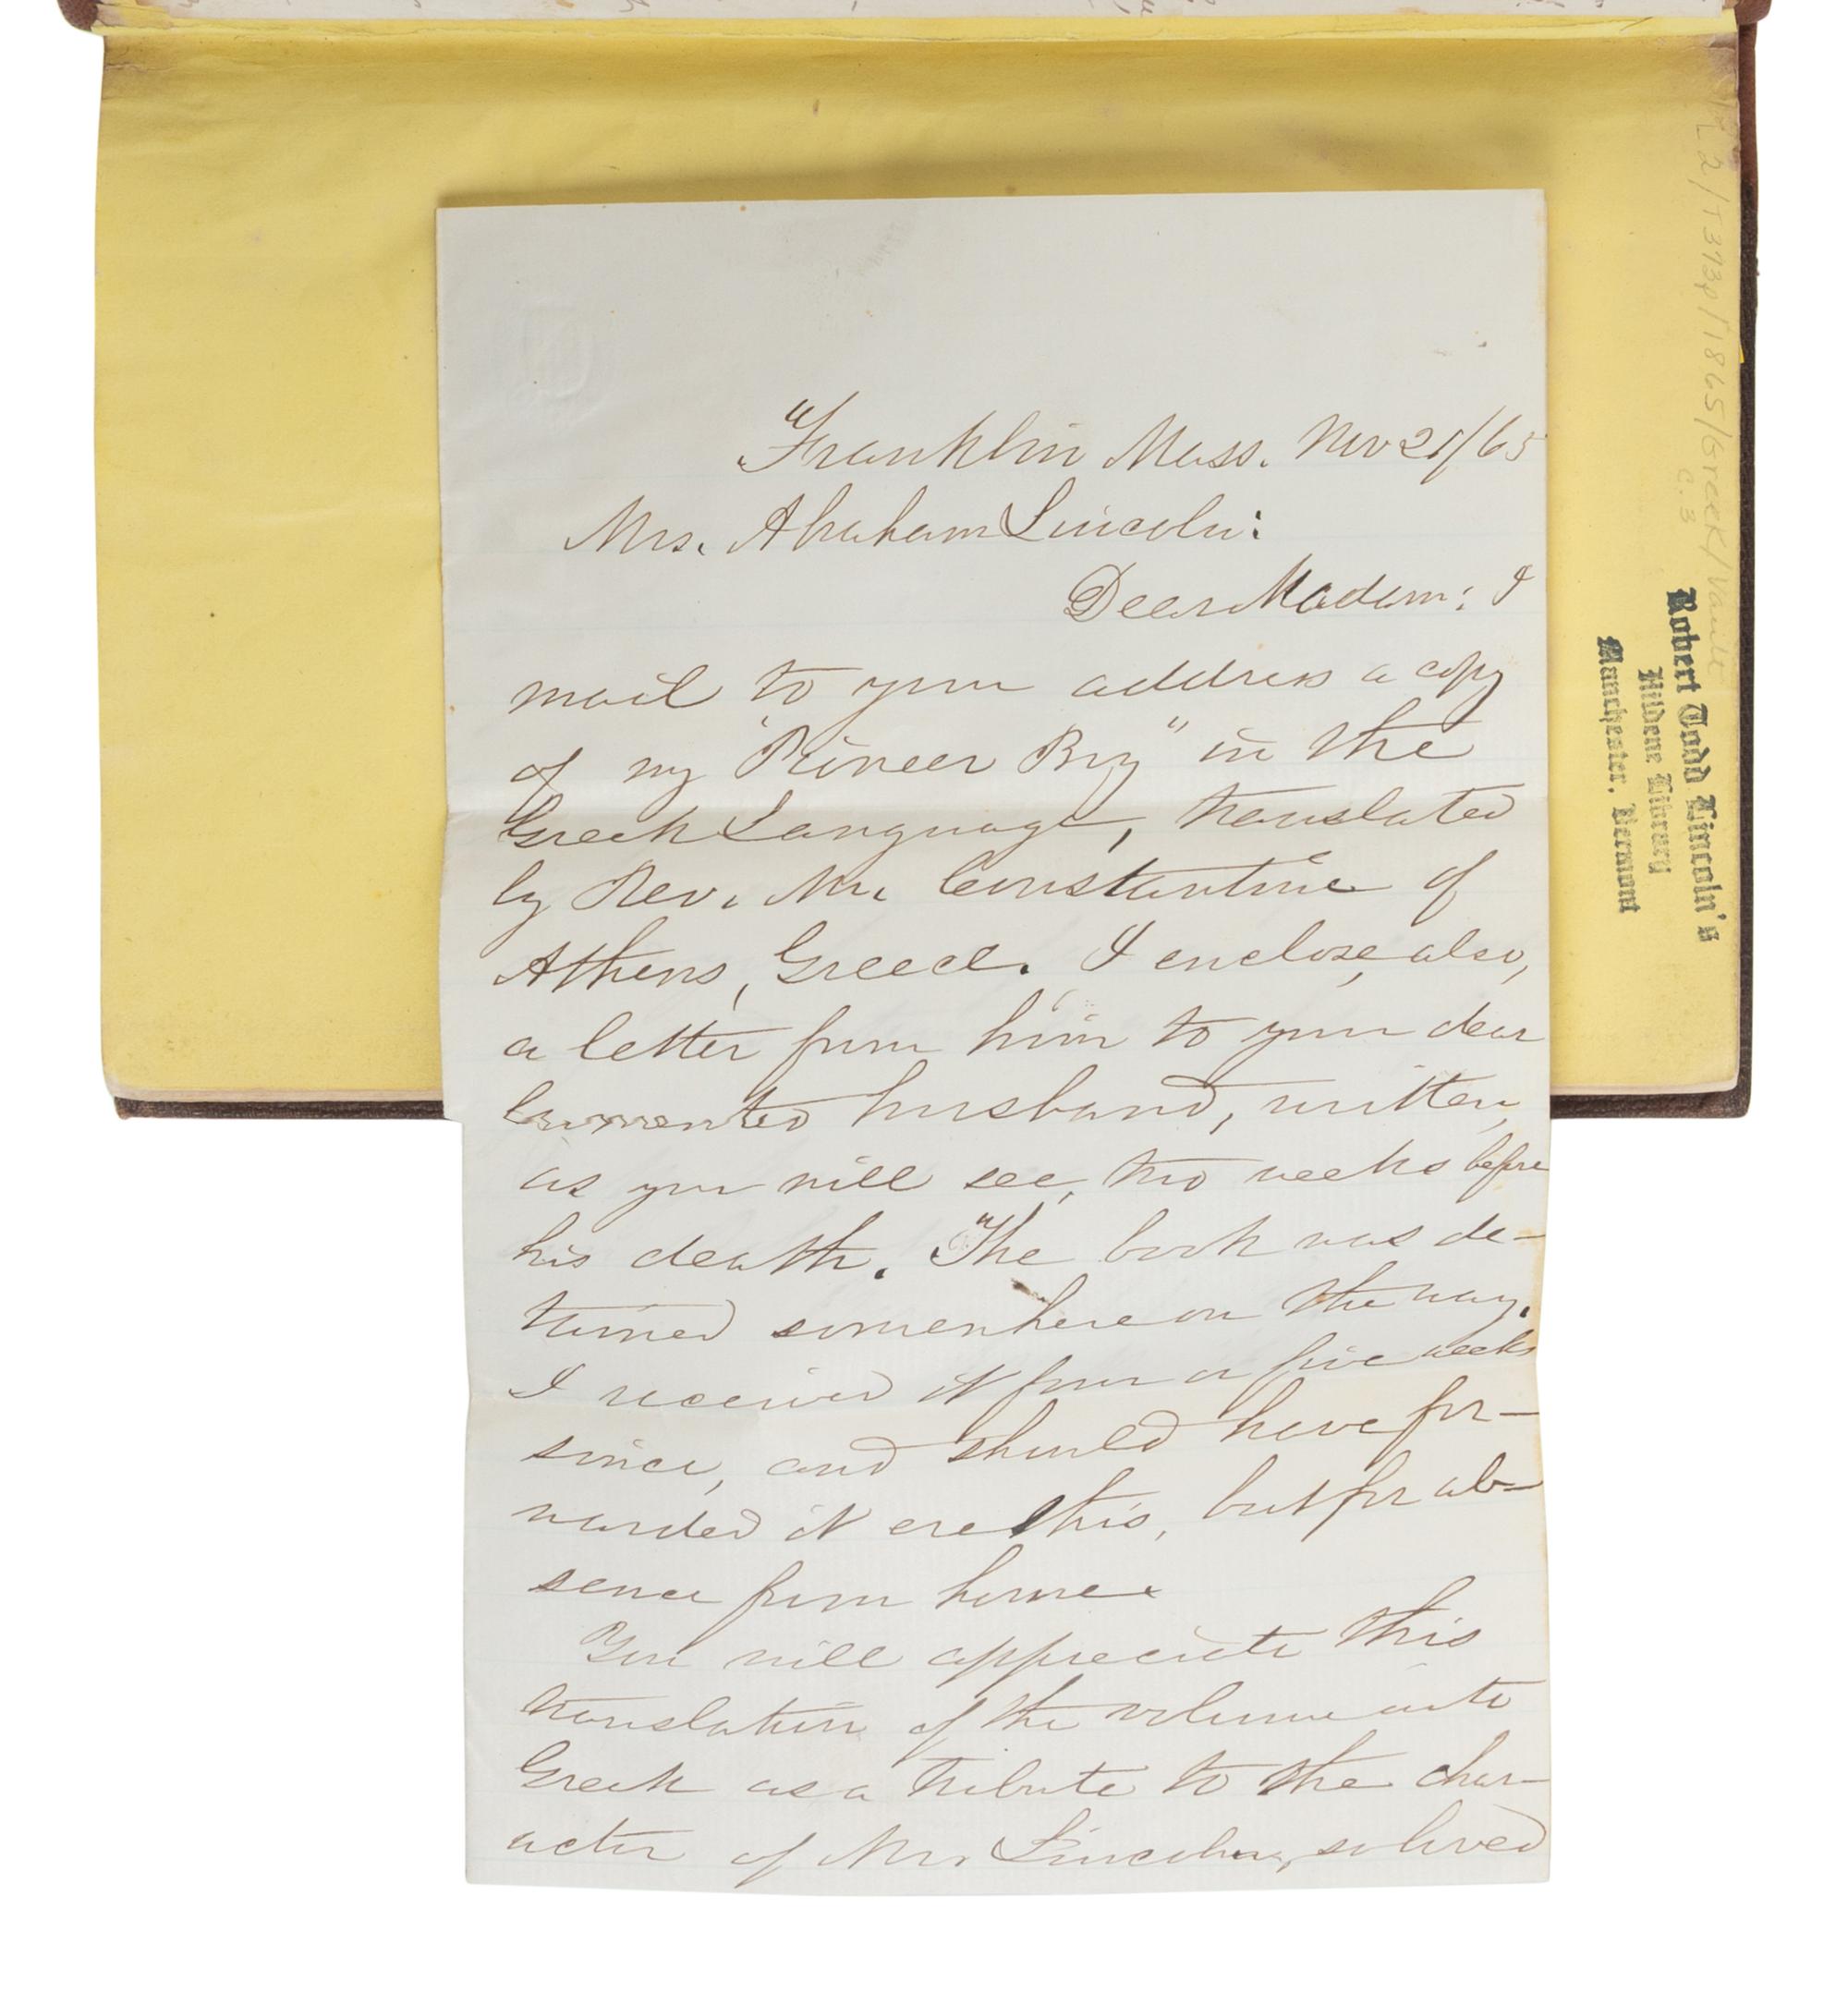 Franklin Mass. Nov 21/65
Mrs. Abraham Lincoln:
Dear Madam: I
mail to your address a copy
of my "Pioneer Boy" in the
Greek Language, translated
by Rev. Mr. Constantine of
Athens, Greece. I enclose, also,
a letter from him to your dear
lamented husband, written,
as you will see, two weeks before
his death. The book was de-
tained somewhere on the way.
I received it four or five weeks
since, and should have for-
warded it ere this, but for ab-
sence from home.
You will appreciate this
translation of the volume into
Greek as a tribute to the char-
acter of Mr. Lincoln, so loved
Robert Todd Lincoln's
Hildene Library
Manchester, Vermont
/1865/Greek/
c.3